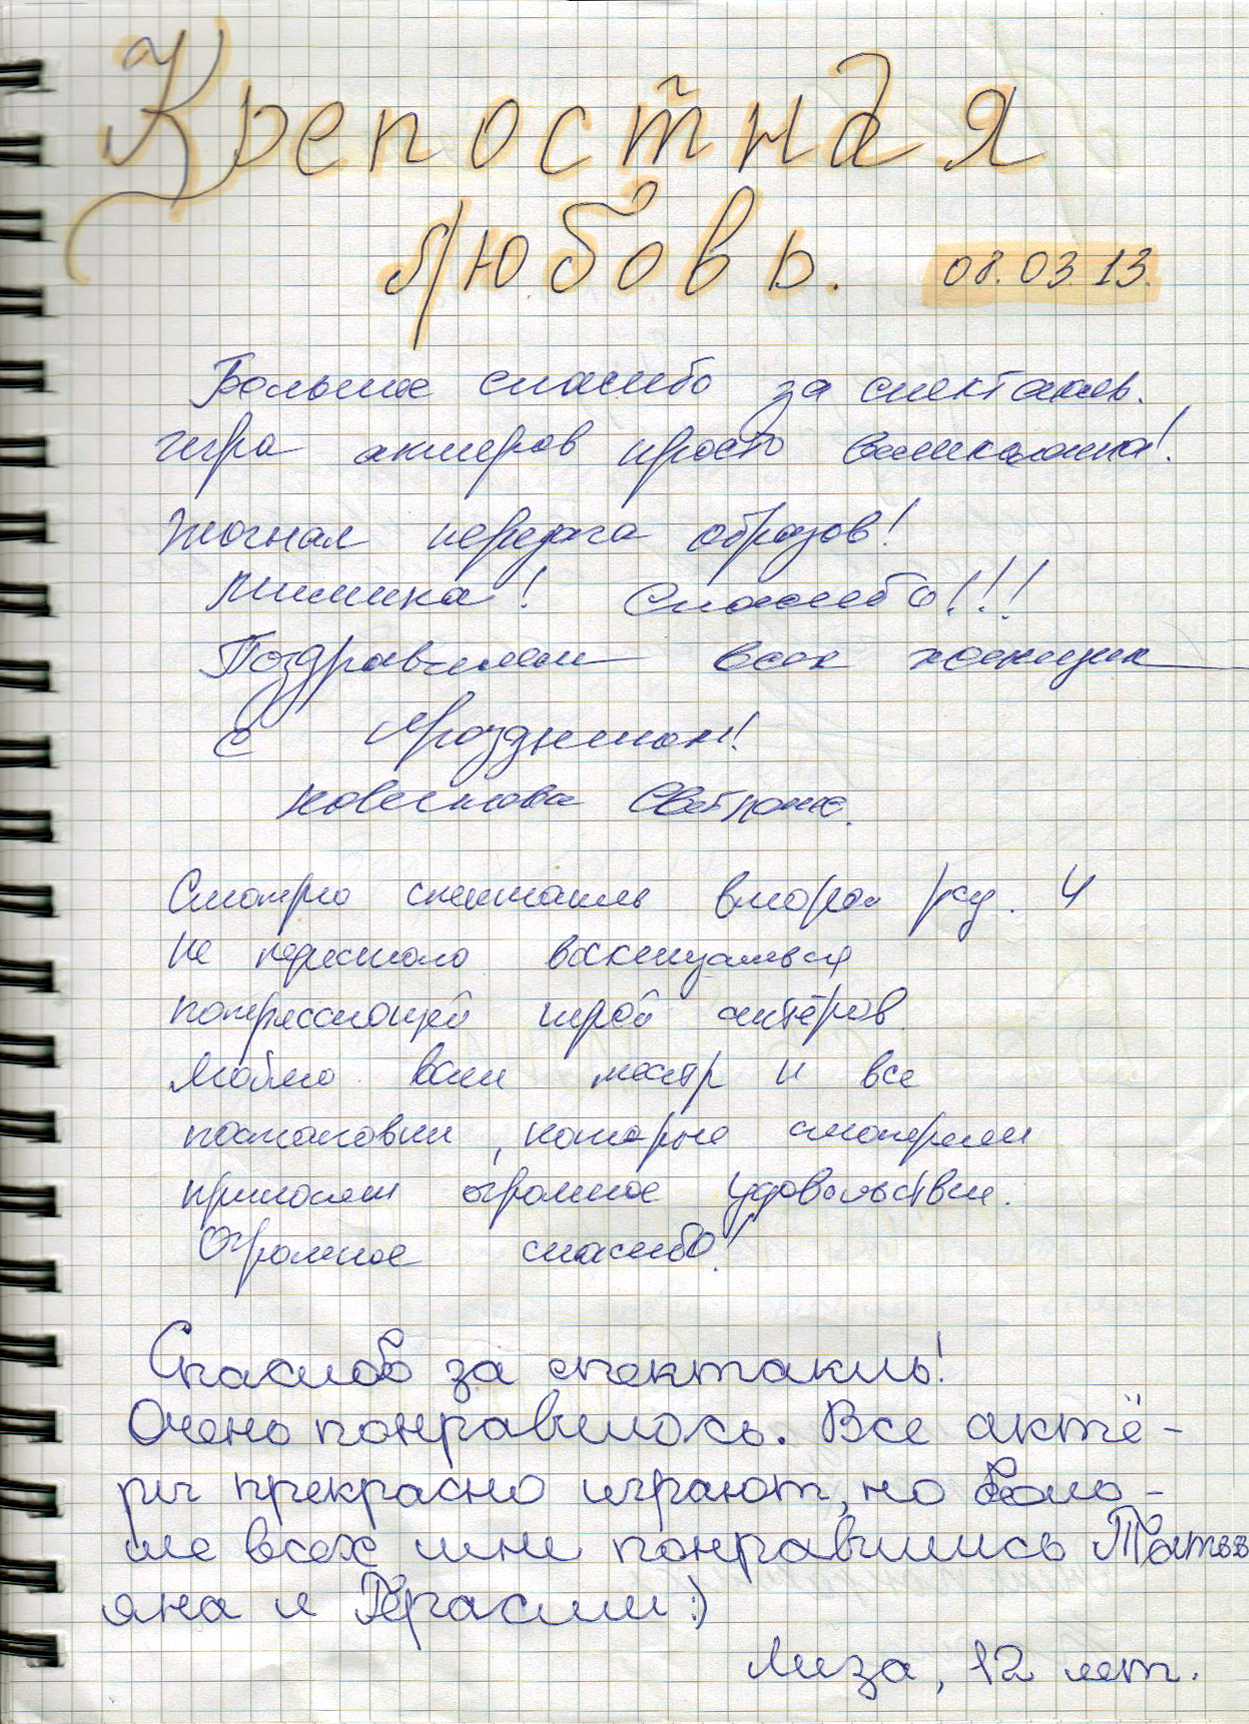 Крепостная
любовь. 08.03.13.
Большое спасибо за спектакль.
Игра актеров просто великолепна!
Точная передача образов!
Мимика! Спасибо!!!
Поздравляем всех женщин
с праздником!
Светлана.
Смотрю спектакль второй раз. И
не перестаю восхищаться
потрясающей игрой актёров.
Люблю ваш театр и все
постановки, которые смотрели
приносят огромное удовольствие.
Огромное спасибо!
Спасибо за спектакль!
Очень понравилось. Все актё-
ры прекрасно играют, но боль-
ше всех мне понравились Тать
яна и Герасим :)
Лиза, 12 лет.